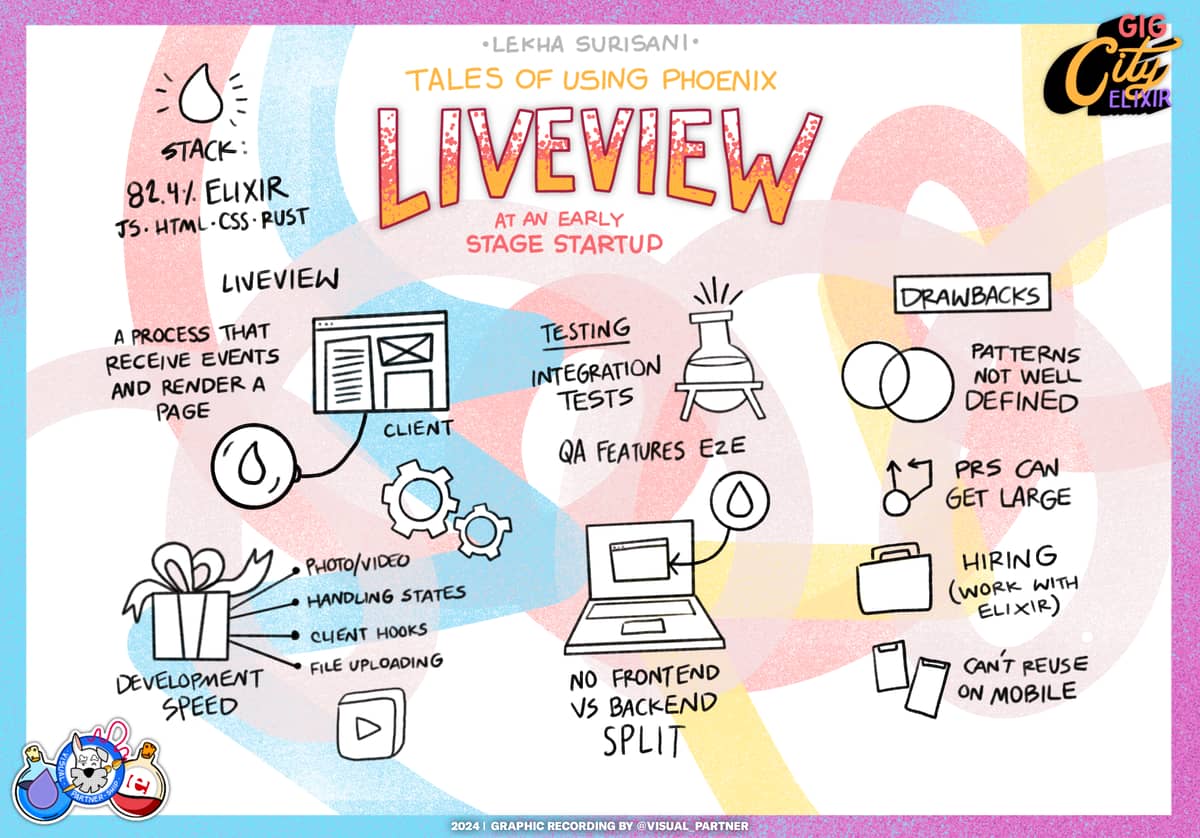 •LEKHA SURISANI•
TALES OF USING PHOENIX
LIVEVIEW
AT AN EARLY
STAGE STARTUP
GIG
City
ELIXIR
STACK:
82.4% ELIXIR
JS•HTML•CSS•RUST
LIVEVIEW
A PROCESS THAT
RECEIVE EVENTS
AND RENDER A
PAGE
CLIENT
DEVELOPMENT
SPEED
PHOTO/VIDEO
HANDLING STATES
CLIENT HOOKS
FILE UPLOADING
TESTING
INTEGRATION
TESTS
QA FEATURES E2E
NO FRONTEND
VS BACKEND
SPLIT
DRAWBACKS
PATTERNS
NOT WELL
DEFINED
PRS CAN
GET LARGE
HIRING
(WORK WITH
ELIXIR)
CAN'T REUSE
ON MOBILE
VISUAL
PARTNER-SHIP
2024 | GRAPHIC RECORDING BY @VISUAL_PARTNER